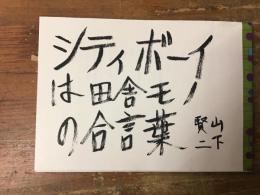 シティボーイ
は田舎モノ
の合言葉
山下
賢二